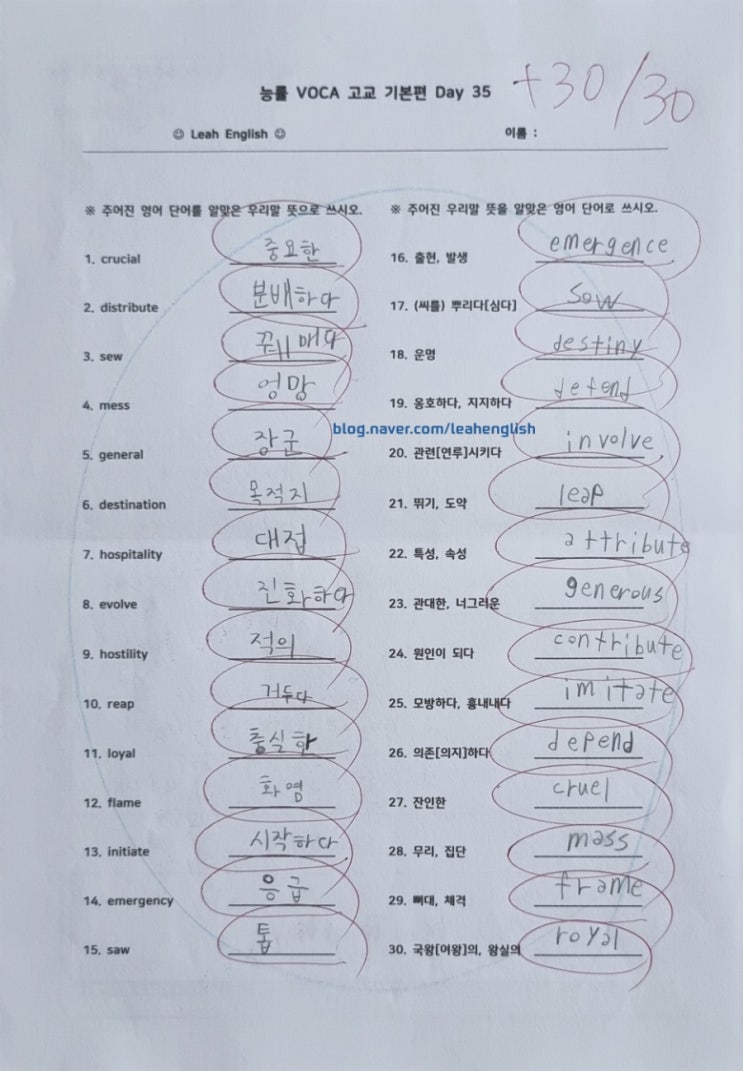 능률 VOCA 고교 기본편 Day 35
+30/30
☺ Leah English ☺
이름 :
※ 주어진 영어 단어를 알맞은 우리말 뜻으로 쓰시오.
1. crucial 중요한
2. distribute 분배하다
3. sew 꿰매다
4. mess 엉망
5. general 장군
6. destination 목적지
7. hospitality 대접
8. evolve 진화하다
9. hostility 적의
10. reap 거두다
11. loyal 충실한
12. flame 화염
13. initiate 시작하다
14. emergency 응급
15. saw 톱
※ 주어진 우리말 뜻을 알맞은 영어 단어로 쓰시오.
16. 출현, 발생 emergence
17. (씨를) 뿌리다[심다] sow
18. 운명 destiny
19. 옹호하다, 지지하다 defend
blog.naver.com/leahenglish
20. 관련[연루]시키다 involve
21. 뛰기, 도약 leap
22. 특성, 속성 attribute
23. 관대한, 너그러운 generous
24. 원인이 되다 contribute
25. 모방하다, 흉내내다 imitate
26. 의존[의지]하다 depend
27. 잔인한 cruel
28. 무리, 집단 mass
29. 뼈대, 체격 frame
30. 국왕[여왕]의, 왕실의 royal